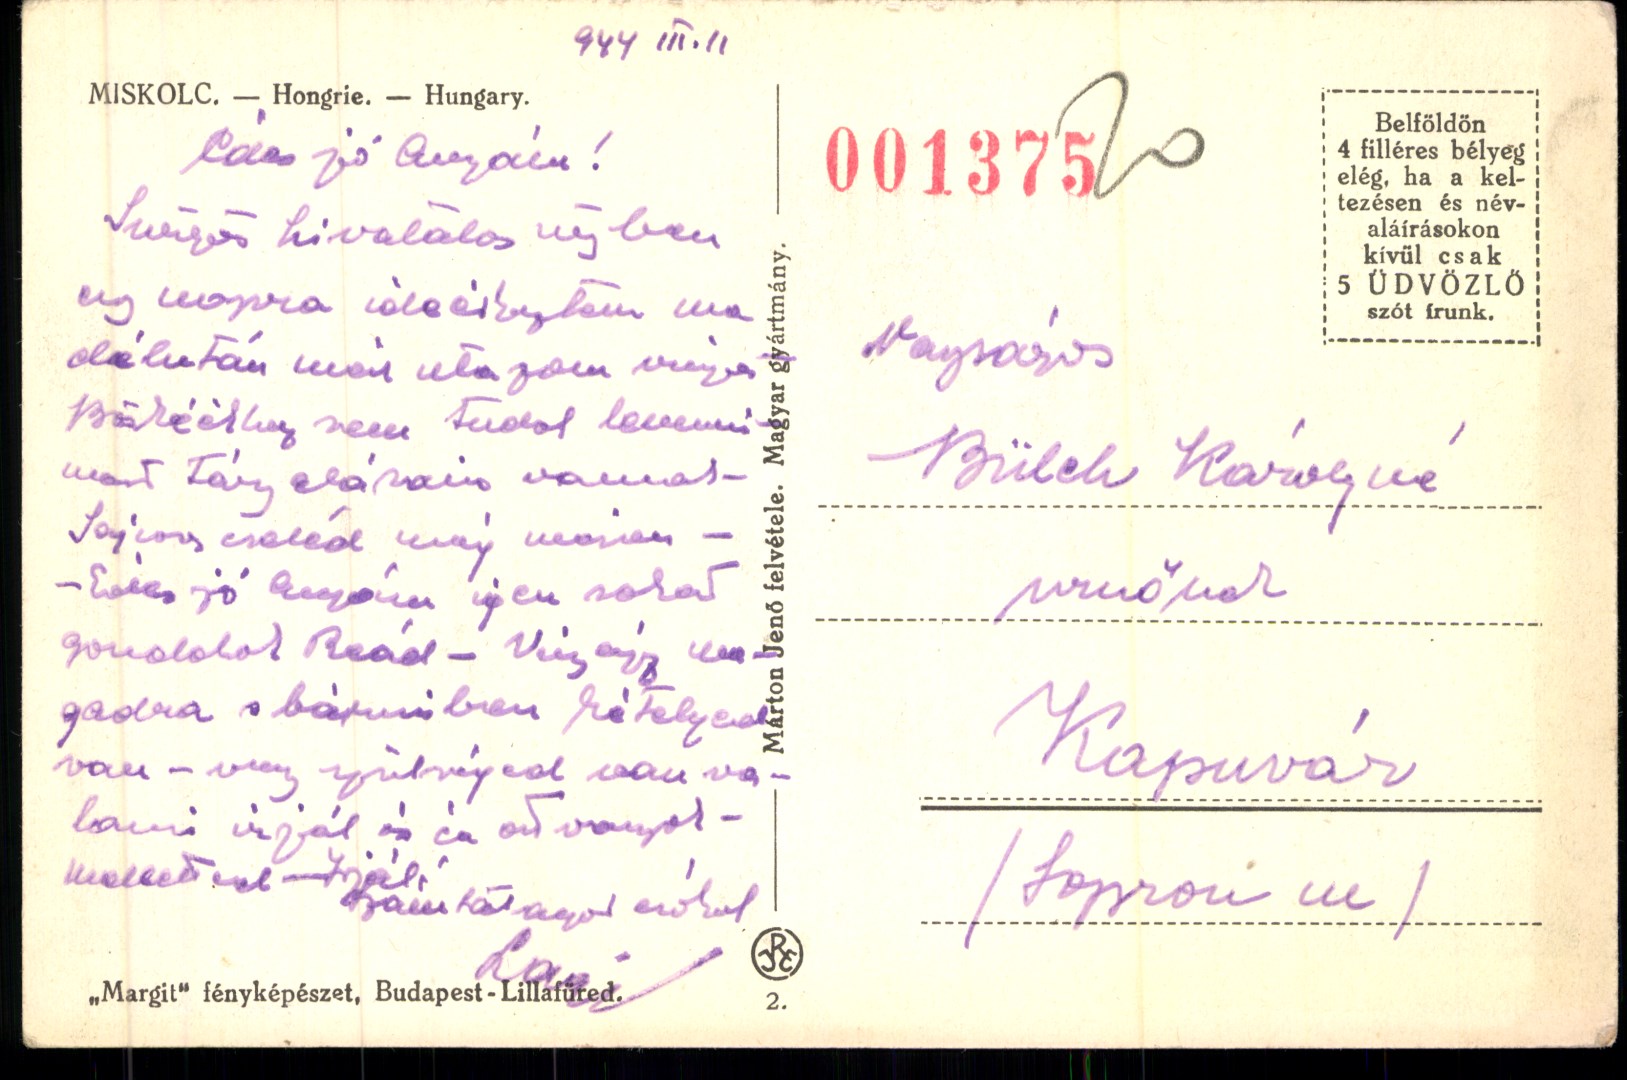 944 III. 11
MISKOLC. — Hongrie. — Hungary.
Édes jó Anyám!
Sürgős hivatalos ügyben
egy napra ideérkeztem ma
délután már utazom vissza
sem tudok lemenni
mert vannak –
család még
– Édes jó Anyám igen sokat
gondolok Reád – Vigyázz ma-
gadra s bármiben kételyed
van – vagy szükséged van va-
lami írjál és én ott vagyok –
melletted – Írjál!
csókol
Laci
„Margit“ fényképészet, Budapest-Lillafüred.
Márton Jenő felvétele. Magyar gyártmány.
2.
001375
20
Belföldön
4 filléres bélyeg
elég, ha a kel-
tezésen és név-
aláírásokon
kívül csak
5 ÜDVÖZLŐ
szót írunk.
Nagyságos
Bülch Károlyné
urnőnek
Kapuvár
/Sopron m/